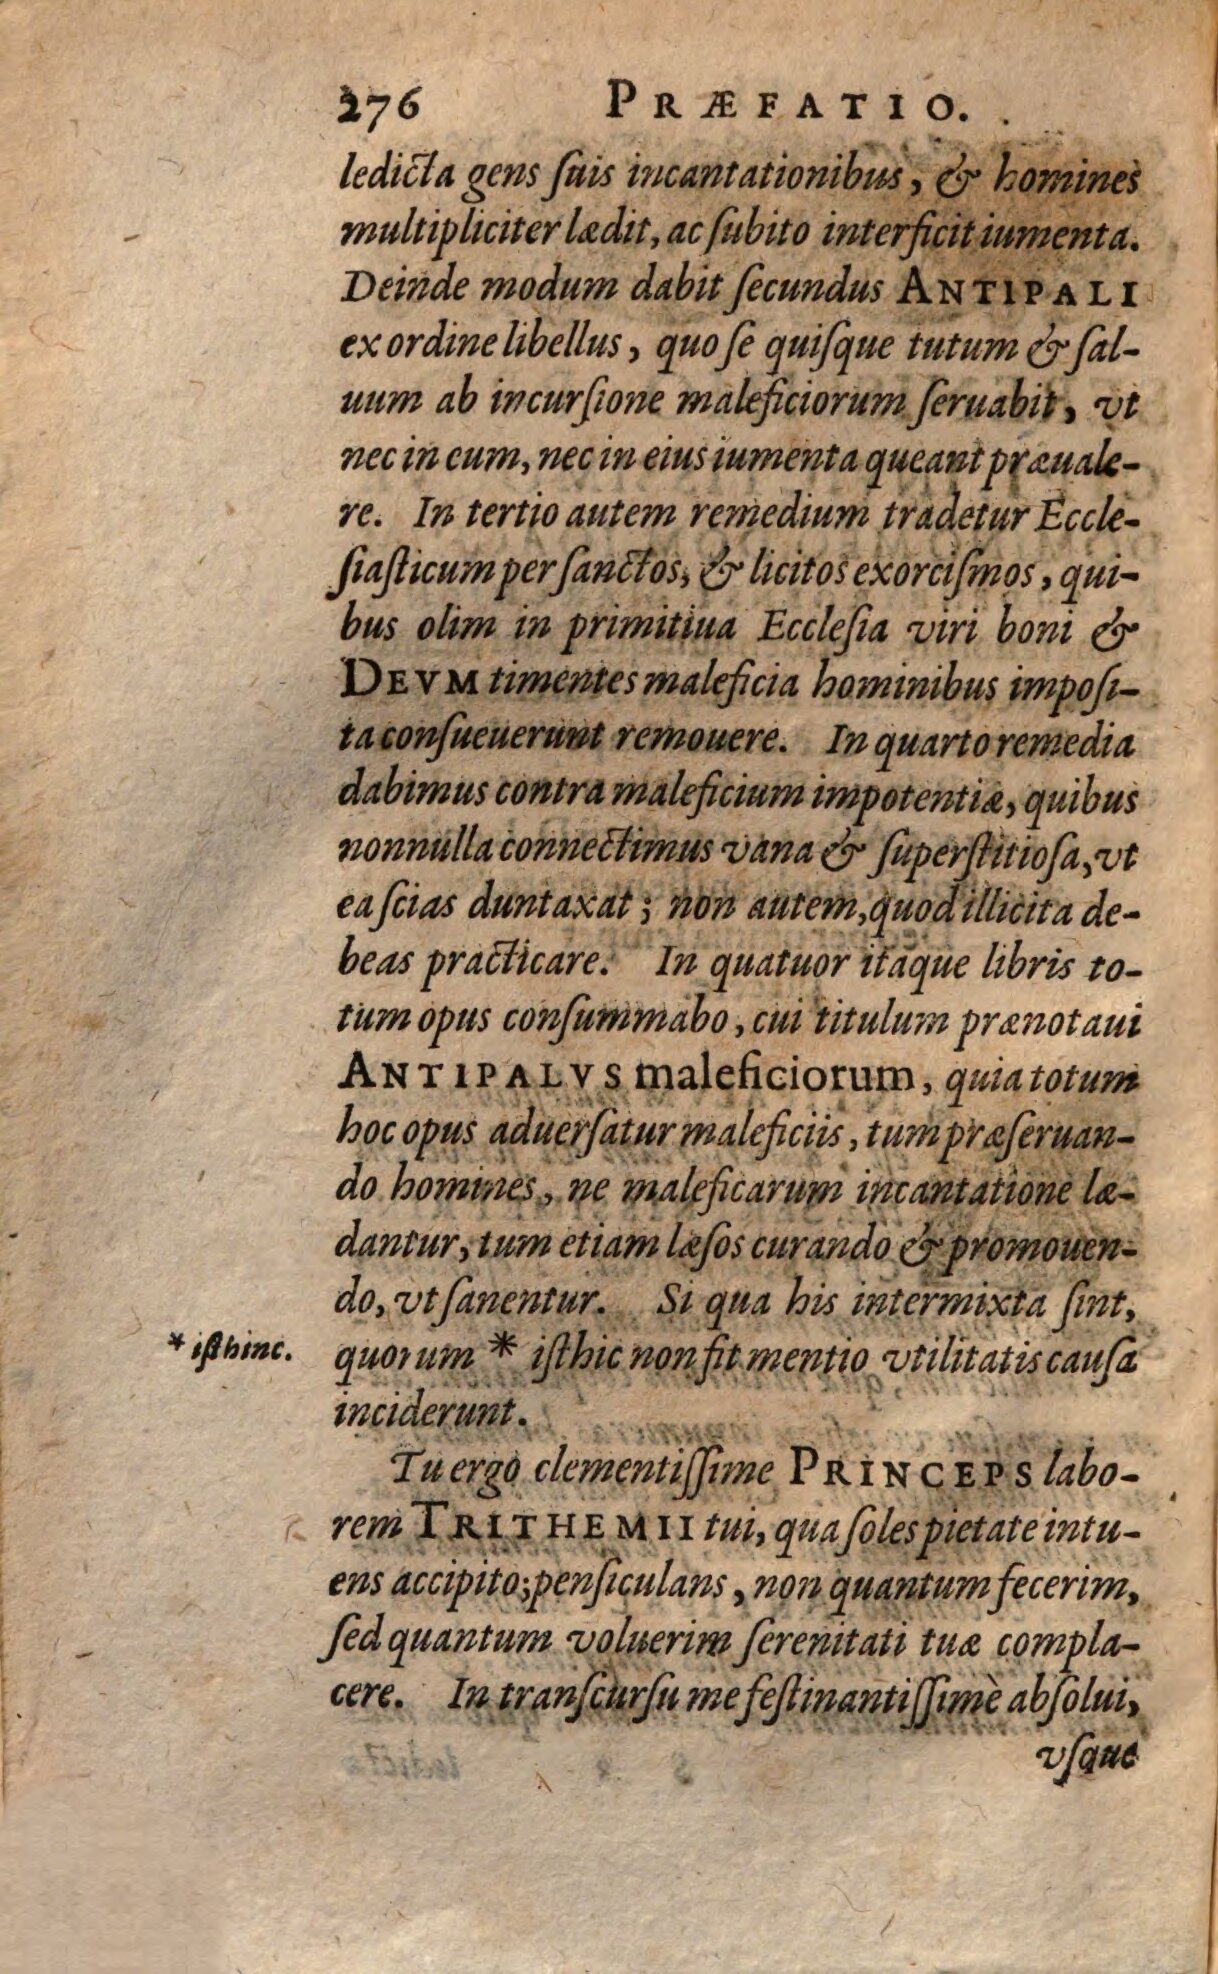 276 PRÆFATIO.
ledicta gens ſuis incantationibus, & homines
multipliciter lædit, ac ſubito interficit iumenta.
Deinde modum dabit ſecundus ANTIPALI
ex ordine libellus, quo ſe quiſque tutum & ſal-
uum ab incurſione maleficiorum ſeruabit, vt
nec in eum, nec in eius iumenta queant præuale-
re. In tertio autem remedium tradetur Eccle-
ſiaſticum per ſanctos, & licitos exorciſmos, qui-
bus olim in primitiua Eccleſia viri boni &
DEVM timentes maleficia hominibus impoſi-
ta conſueuerunt remouere. In quarto remedia
dabimus contra maleficium impotentiæ, quibus
nonnulla connectimus vana & ſuperſtitioſa, vt
ea ſcias duntaxat; non autem, quod illicita de-
beas practicare. In quatuor itaque libris to-
tum opus conſummabo, cui titulum prænotaui
ANTIPALVS maleficiorum, quia totum
hoc opus aduerſatur maleficiis, tum præſeruan-
do homines, ne maleficarum incantatione læ-
dantur, tum etiam læſos curando & promouen-
do, vt ſanentur. Si qua his intermixta ſint,
* iſthinc. quorum * iſthic non fit mentio vtilitatis cauſa
inciderunt.
Tu ergo clementiſſime PRINCEPS labo-
rem TRITHEMII tui, qua ſoles pietate intu-
ens accipito; penſiculans, non quantum fecerim,
ſed quantum voluerim ſerenitati tuæ compla-
cere. In tranſcurſu me feſtinantiſſimè abſolui,
vſque